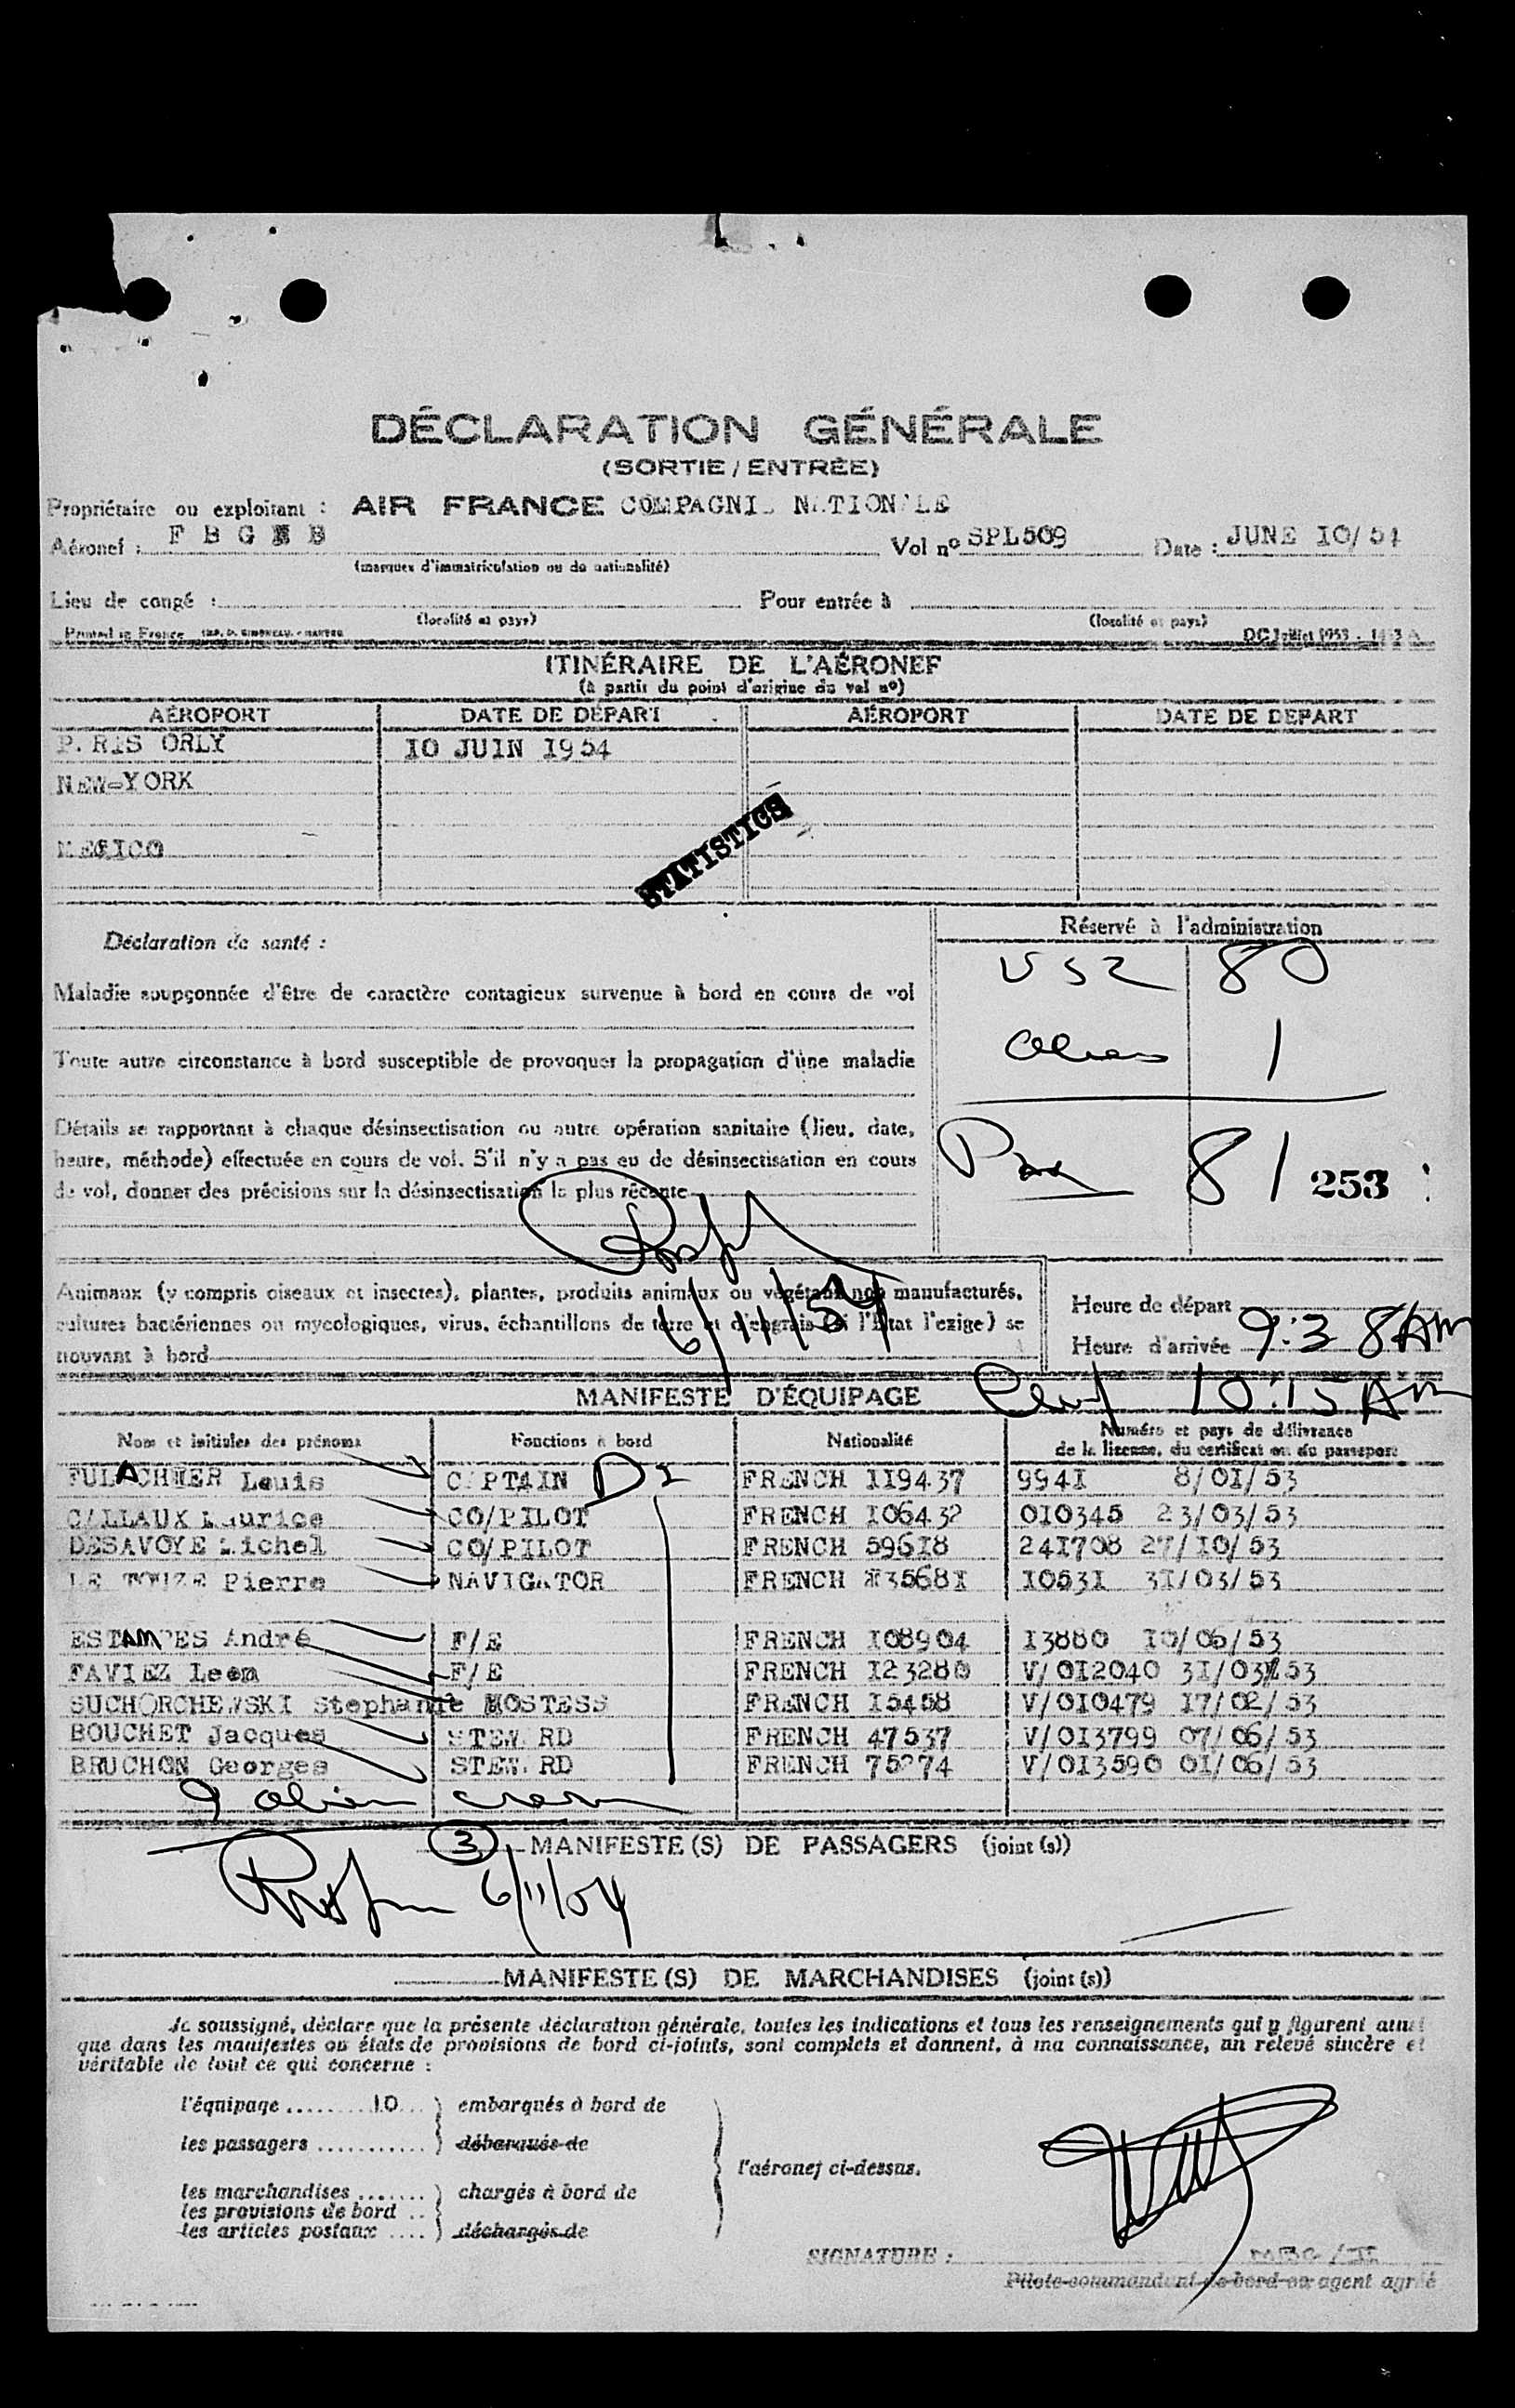 DÉCLARATION GÉNÉRALE
(SORTIE / ENTRÉE)
Propriétaire ou exploitant : AIR FRANCE COMPAGNIE NATIONALE
Aéronef : F B G B Vol nº SPL509 Date : JUNE 10/54
(marques d'immatriculation ou de nationalité)
Lieu de congé : Pour entrée à
(localité et pays) (localité et pays)
Printed in France
ITINÉRAIRE DE L'AÉRONEF
(à partir du point d'origine du vol nº)
AÉROPORT DATE DE DÉPART AÉROPORT DATE DE DÉPART
PARIS ORLY 10 JUIN 1954
NEW-YORK
MEXICO
STATISTICS
Déclaration de santé : Réservé à l'administration
USZ 80
Maladie soupçonnée d'être de caractère contagieux survenue à bord en cours de vol
Aliens 1
Toute autre circonstance à bord susceptible de provoquer la propagation d'une maladie
Détails se rapportant à chaque désinsectisation ou autre opération sanitaire (lieu, date,
heure, méthode) effectuée en cours de vol. S'il n'y a pas eu de désinsectisation en cours
de vol, donner des précisions sur la désinsectisation la plus récente
Pax 81 253
6/11/54
Animaux (y compris oiseaux et insectes), plantes, produits animaux ou végétaux non manufacturés,
cultures bactériennes ou mycologiques, virus, échantillons de terre et d'engrais (si l'État l'exige) se
trouvant à bord
Heure de départ
Heure d'arrivée 9:38 AM
10:15 AM
MANIFESTE D'ÉQUIPAGE
Nom et initiales des prénoms Fonctions à bord Nationalité Numéro et pays de délivrance
de la licence, du certificat ou du passeport
FULACHIER Louis CAPTAIN FRENCH 119437 9941 8/01/53
CALLAUX Maurice CO/PILOT FRENCH 106432 010345 23/03/53
DESAVOYE Michel CO/PILOT FRENCH 59618 241708 27/10/53
LE TOUZE Pierre NAVIGATOR FRENCH 35681 10531 31/03/53
ESTAMPES André F/E FRENCH 108904 13880 10/06/53
FAVIEZ Leon F/E FRENCH 123280 V/012040 31/03/53
SUCHORCHEWSKI Stephanie HOSTESS FRENCH 15458 V/010479 17/02/53
BOUCHET Jacques STEWARD FRENCH 47537 V/013799 07/06/53
BRUCHON Georges STEWARD FRENCH V/013590 01/06/53
9 alien crew
3 MANIFESTE(S) DE PASSAGERS (joint(s))
6/11/54
MANIFESTE(S) DE MARCHANDISES (joint(s))
Je soussigné, déclare que la présente déclaration générale, toutes les indications et tous les renseignements qui y figurent ainsi
que dans les manifestes ou états de provisions de bord ci-joints, sont complets et donnent, à ma connaissance, un relevé sincère et
véritable de tout ce qui concerne :
l'équipage ......... 10 ... embarqués à bord de
les passagers ............ débarqués de
l'aéronef ci-dessus.
les marchandises ....... chargés à bord de
les provisions de bord ..
les articles postaux .... déchargés de
SIGNATURE :
Pilote commandant de bord ou agent agréé